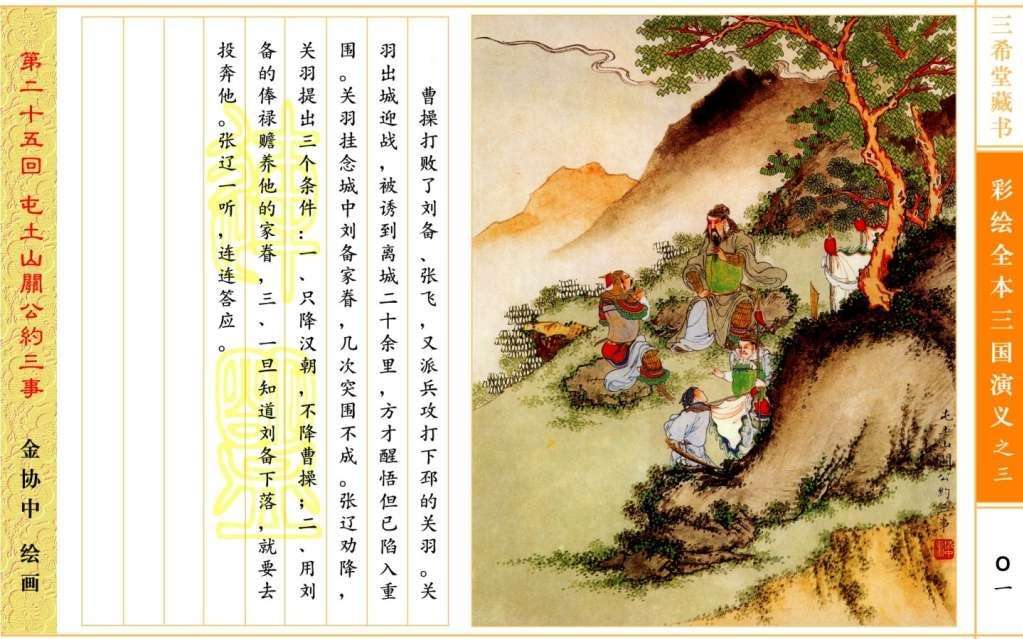 三希堂藏书
彩绘全本三国演义之三
〇一
屯土山关公约三事
曹操打败了刘备、张飞，又派兵攻打下邳的关羽。关
羽出城迎战，被诱到离城二十余里，方才醒悟但已陷入重
围。关羽挂念城中刘备家眷，几次突围不成。张辽劝降，
关羽提出三个条件：一、只降汉朝，不降曹操；二、用刘
备的俸禄赡养他的家眷，三、一旦知道刘备下落，就要去
投奔他。张辽一听，连连答应。
第二十五回 屯土山關公約三事
金协中 绘画